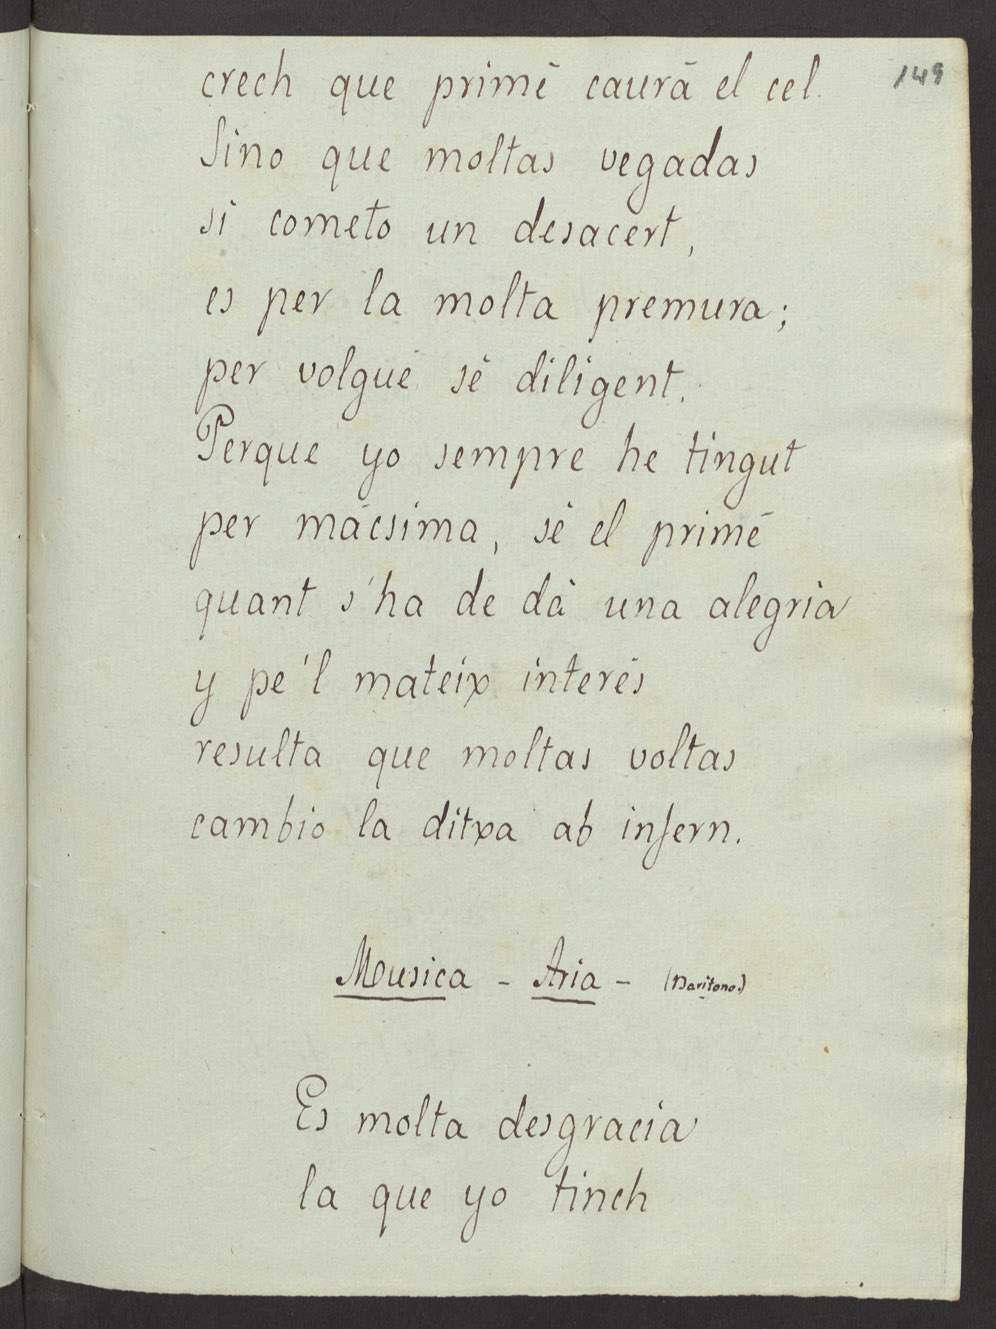 149
crech que primé caurá el cel.
Sino que moltas vegadas
si cometo un desacert,
es per la molta premura;
per volgué sé diligent.
Perque yo sempre he tingut
per mácsima, sé el primé
quant s'ha de dá una alegria
y pe'l mateix interés
resulta que moltas voltas
cambio la ditxa ab infern.
Musica - Aria - (Baritono.)
Es molta desgracia
la que yo tinch